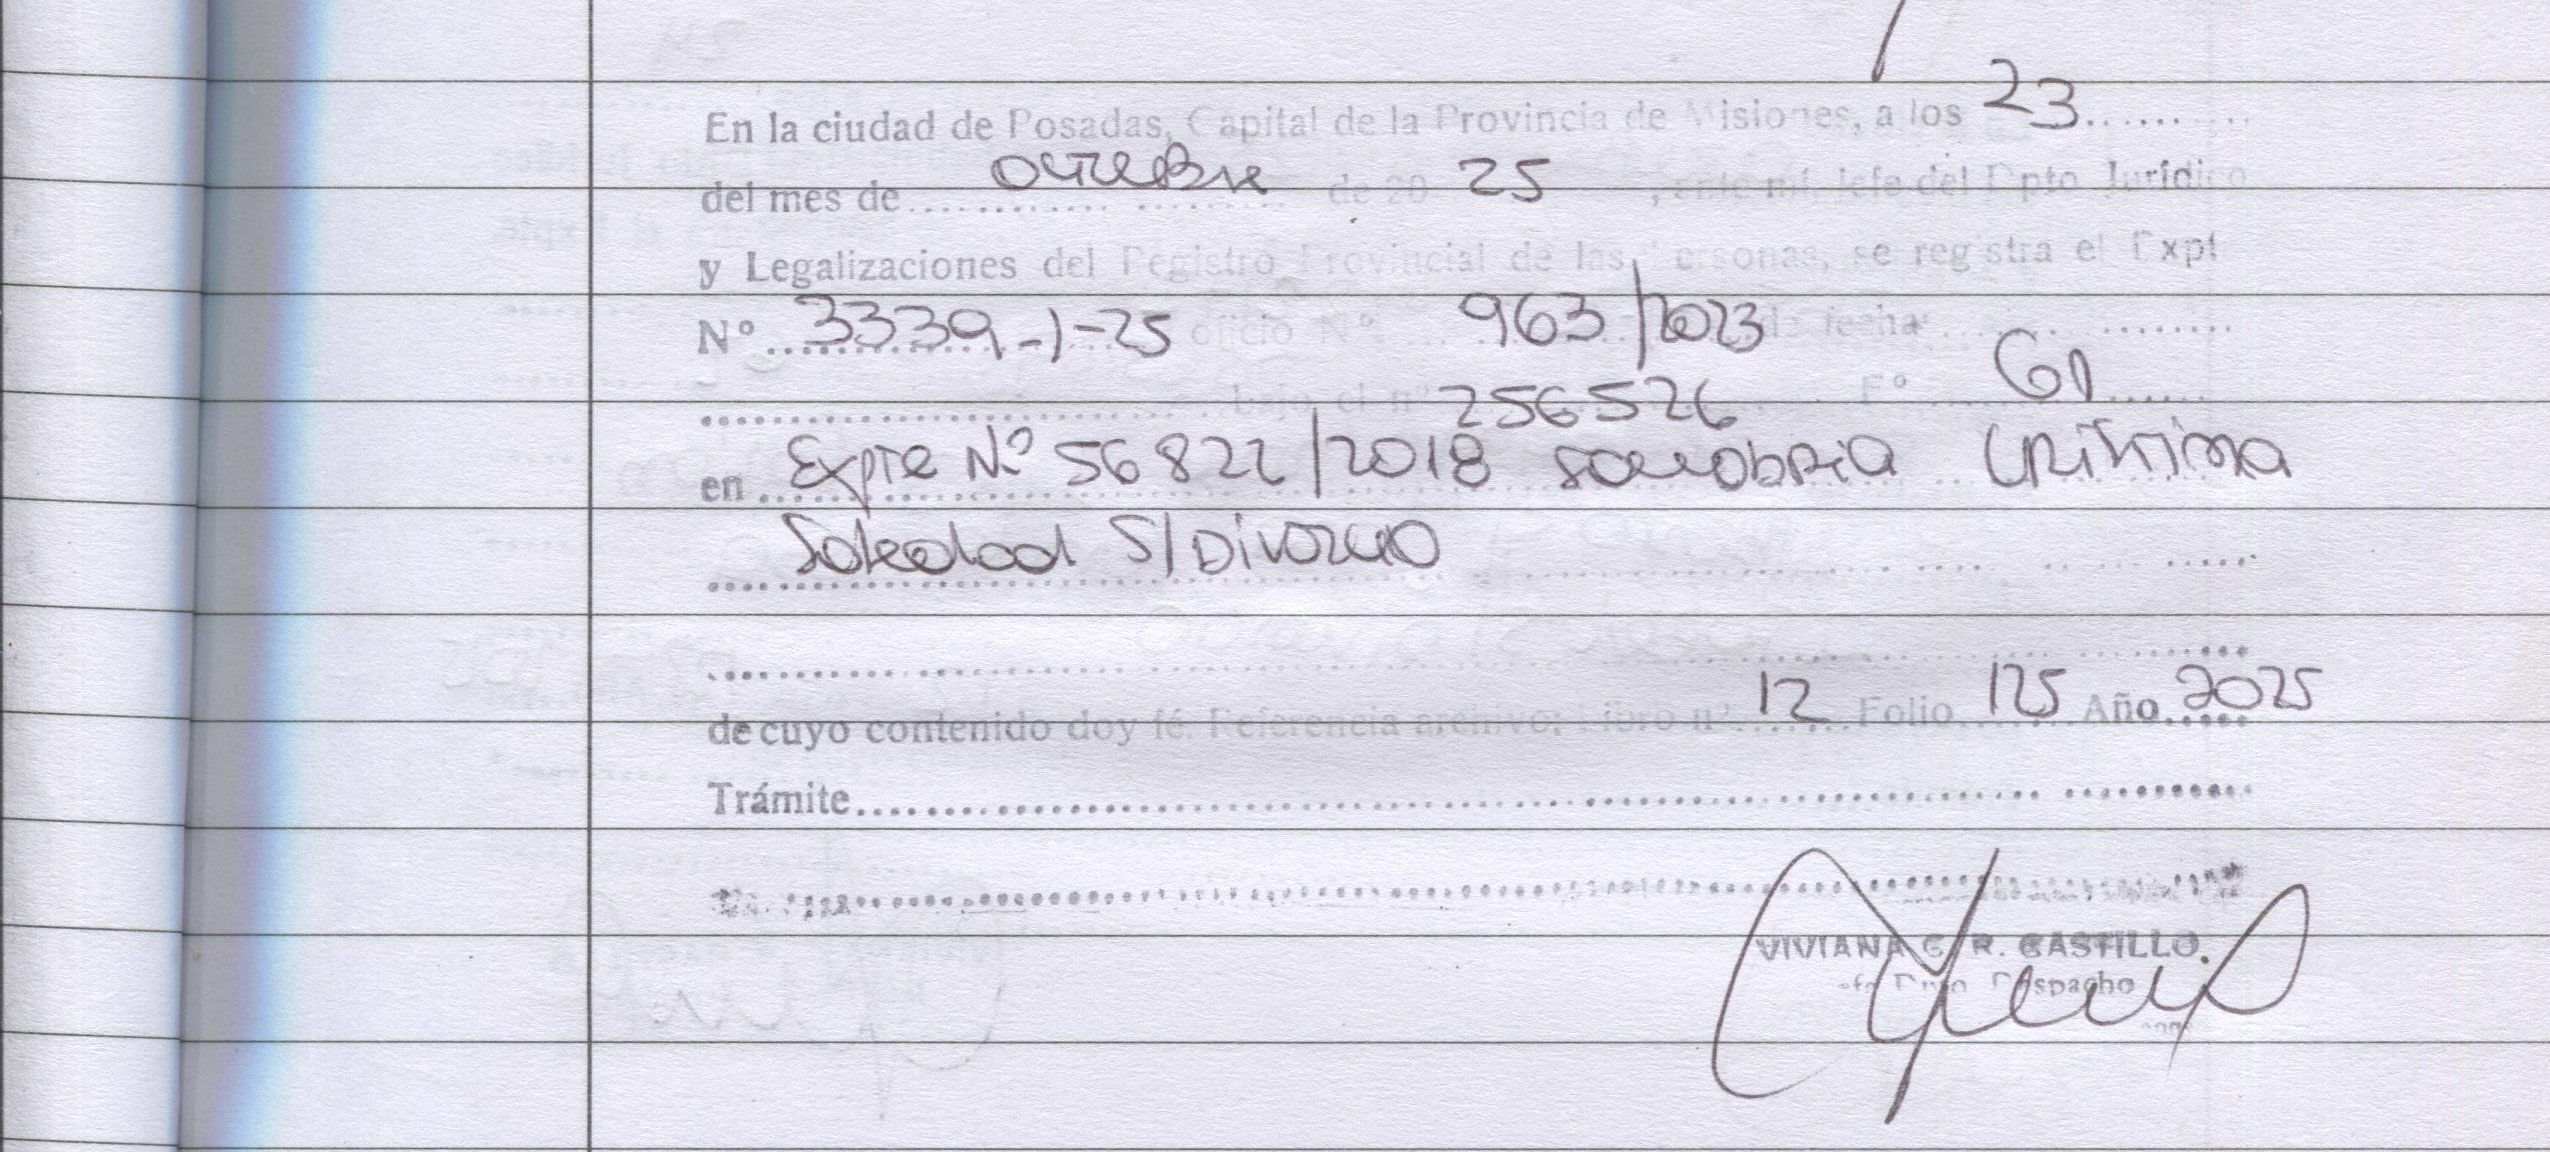 En la ciudad de Posadas, Capital de la Provincia de Misiones, a los 23
del mes de octubre de 20 25, ante mí, Jefe del Dpto Jurídico
y Legalizaciones del Registro Provincial de las Personas, se registra el Expt
Nº 3339-1-25 oficio Nº 963/2023 de fecha
bajo el nº 256526 Fº
en Expte Nº 56822/2018
Soledad S/Divorcio
de cuyo contenido doy fé. Referencia archivo: Libro nº 12 Folio 125 Año 2025
Trámite
VIVIANA C. R. CASTILLO
Jefe Dpto Despacho